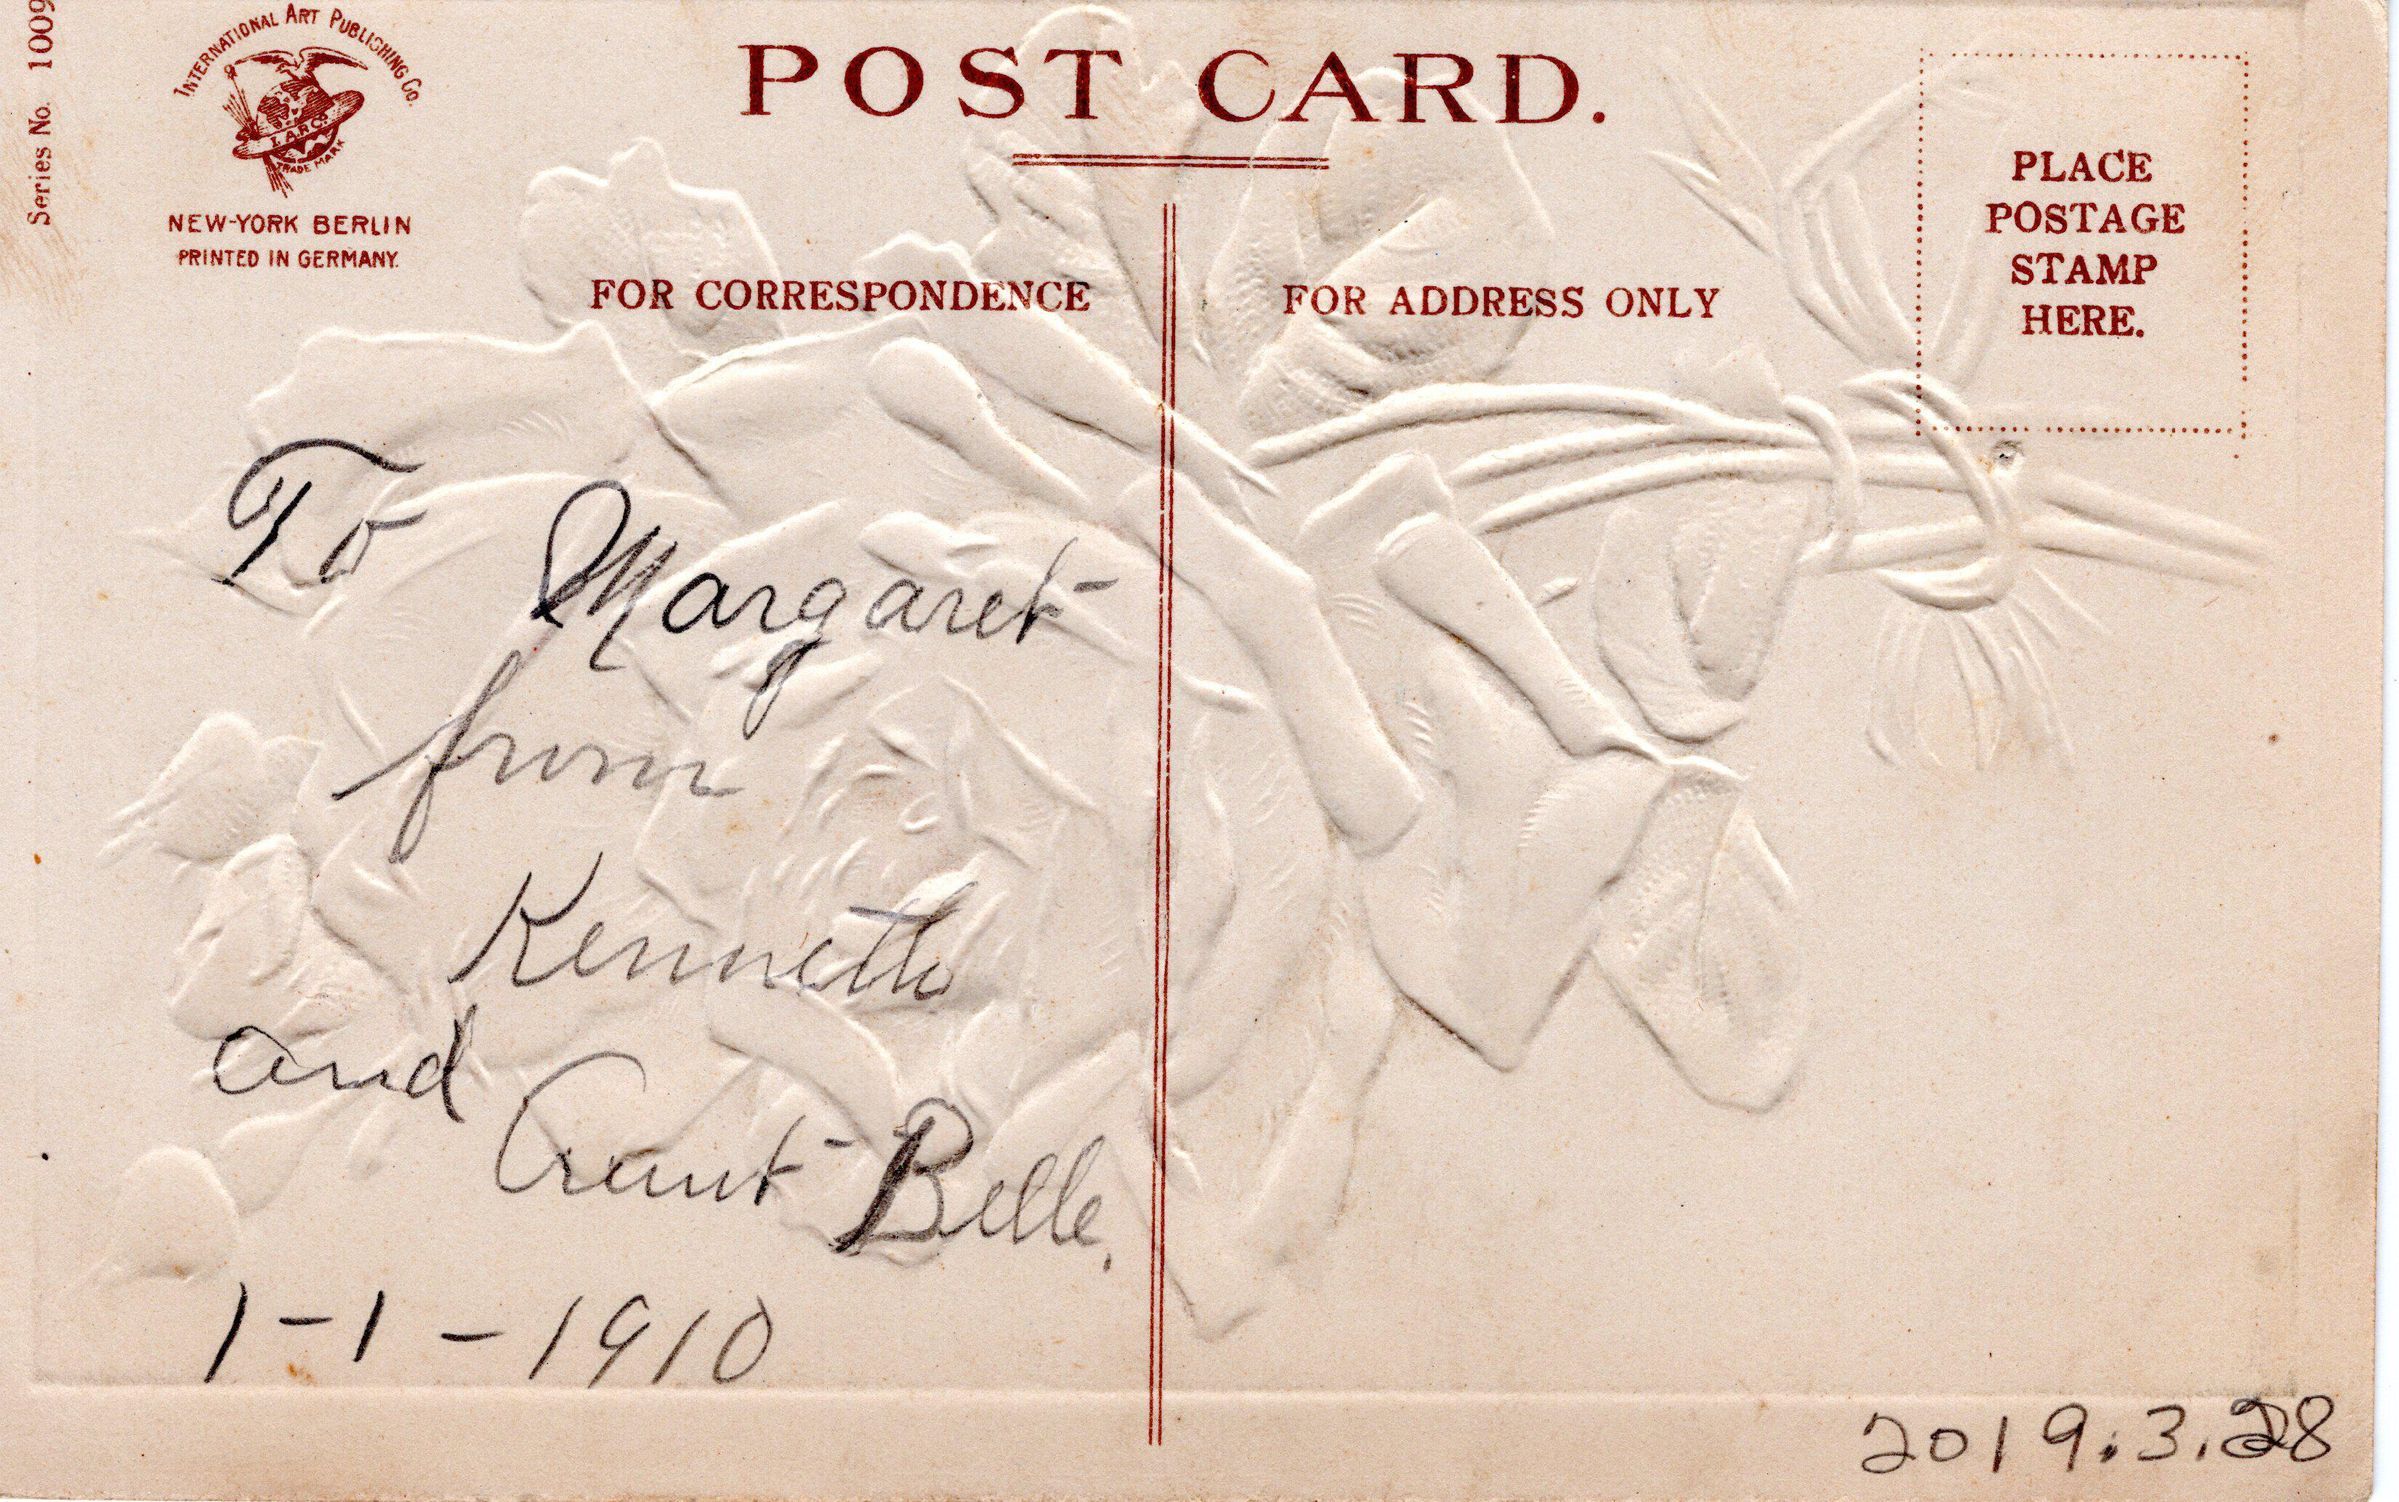 Series No. 1009
INTERNATIONAL ART PUBLISHING CO.
I.A.P.CO.
TRADE MARK
NEW-YORK BERLIN
PRINTED IN GERMANY.
POST CARD.
FOR CORRESPONDENCE
FOR ADDRESS ONLY
PLACE
POSTAGE
STAMP
HERE.
To Margaret
from
Kenneth
and
Aunt Belle.
1-1-1910
2019.3.28